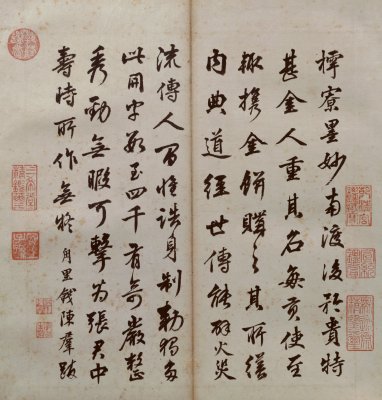 樗寮墨妙南渡後矜貴特
甚金人重其名每貢使至
輒携金餅購之其所繕
内典道經世傳能辟火災
流傳人間惟誥身制勅獨多
此冊字數至四千有奇嚴整
秀勁無瑕可擊為張君中
壽時所作無疑 甪里錢陳羣跋